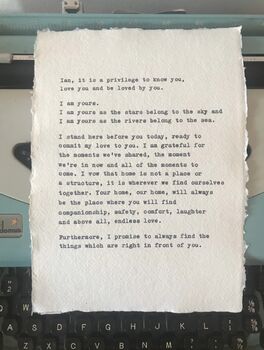 Ian, it is a privilege to know you,
love you and be loved by you.
I am yours.
I am yours as the stars belong to the sky and
I am yours as the rivers belong to the sea.
I stand here before you today, ready to
commit my love to you. I am grateful for
the moments we've shared, the moment
we're in now and all of the moments to
come. I vow that home is not a place or
a structure, it is wherever we find ourselves
together. Your home, our home, will always
be the place where you will find
companionship, safety, comfort, laughter
and above all, endless love.
Furthermore, I promise to always find the
things which are right in front of you.
A S D F G H J K L